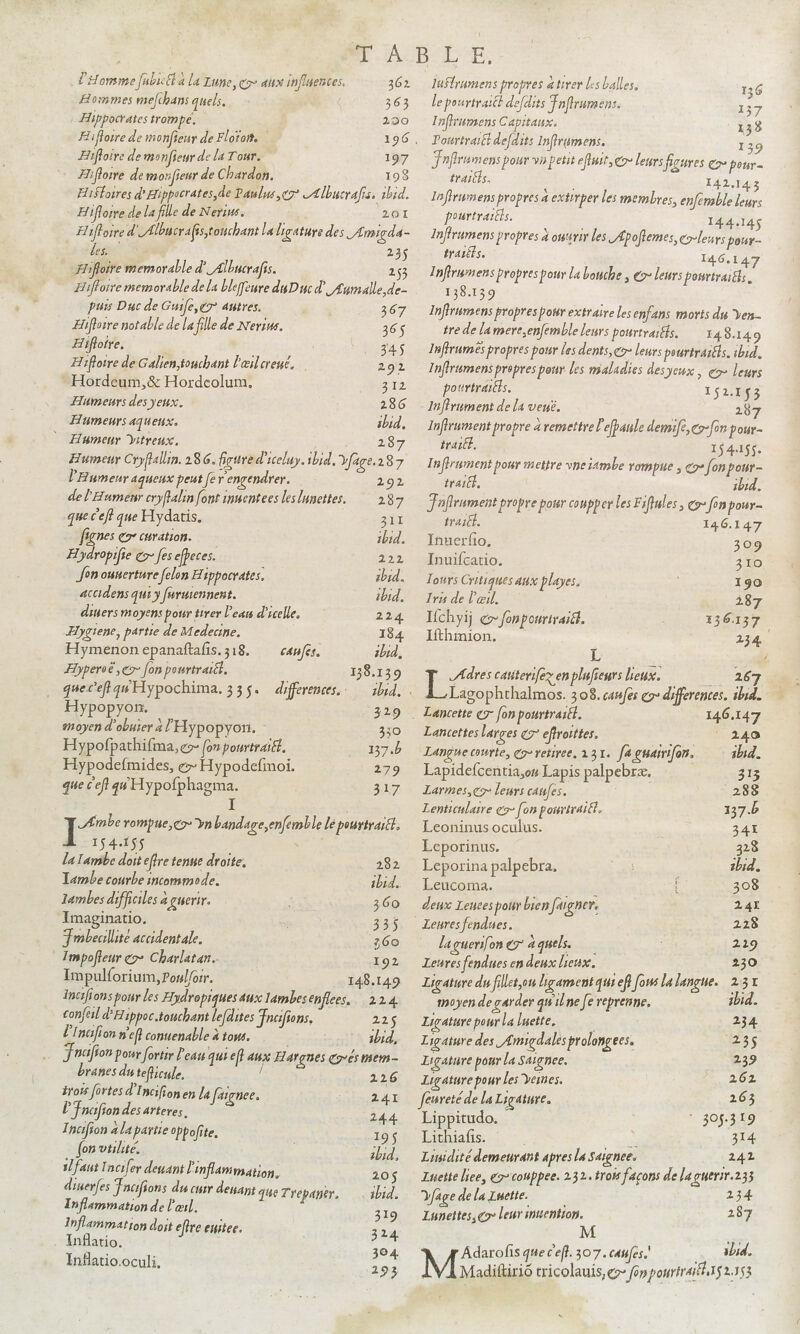 TABLE.
l'Homme subiect à la Lune, & aux influences. 362
Hommes meschans quels. 363
Hippocrates trompé. 200
Histoire de monsieur de Floïon. 196
Histoire de monsieur de la Tour. 197
Histoire de monsieur de Chardon. 198
Histoires d'Hippocrates, de Paulus, & Albucrasis. ibid.
Histoire de la fille de Nerius. 201
Histoire d'Albucrasis, touchant la ligature des Amigda-
les. 235
Histoire memorable d'Albucrasis. 253
Histoire memorable de la blesseure du Duc d'Aumalle, de-
puis Duc de Guise, & autres. 367
Histoire notable de la fille de Nerius. 365
Histoire. 345
Histoire de Galien, touchant l'œil creué. 292
Hordeum, & Hordeolum. 312
Humeurs des yeux. 286
Humeurs aqueux. ibid.
Humeur vitreux. 287
Humeur Crystallin. 286. figure d'iceluy. ibid. vsage. 287
l'Humeur aqueux peut se r'engendrer. 292
de l'Humeur crystalin sont inuentees les lunettes. 287
que c'est que Hydatis. 311
signes & curation. ibid.
Hydropisie & ses especes. 222
son ouuerture selon Hippocrates. ibid.
accidens qui y suruiennent. ibid.
diuers moyens pour tirer l'eau d'icelle. 224
Hygiene, partie de Medecine. 184
Hymenon epanastasis. 318. causes. ibid.
Hyperoë, & son pourtraict. 138.139
que c'est qu'Hypochima. 335. differences. ibid.
Hypopyon. 329
moyen d'obuier à l'Hypopyon. 330
Hypospathisma, & son pourtraict. 137.b
Hypodesmides, & Hypodesmoi. 279
que c'est qu'Hyposphagma. 317
I
IAmbe rompue, & vn bandage, ensemble le pourtraict.
154.155
la Iambe doit estre tenue droite. 282
Iambe courbe incommode. ibid.
Iambes difficiles à guerir. 360
Imaginatio. 335
Imbecillité accidentale. 360
Imposteur & Charlatan. 192
Impulsorium, Poulsoir. 148.149
Incisions pour les Hydropiques aux Iambes enflees. 224
conseil d'Hippoc. touchant lesdites Incisions. 225
l'Incision n'est conuenable à tous. ibid.
Incision pour sortir l'eau qui est aux Hargnes & és mem-
branes du testicule. 226
trois sortes d'Incision en la saignee. 241
l'Incision des arteres. 244
Incision à la partie opposite. 195
son vtilité. ibid.
il faut Inciser deuant l'inflammation. 205
diuerses Incisions du cuir deuant que Trepaner. ibid.
Inflammation de l'œil. 319
Inflammation doit estre euitee. 324
Inflatio. 304
Inflatio oculi. 293
Instrumens propres à tirer les balles. 136
le pourtraict desdits Instrumens. 137
Instrumens Capitaux. 138
Pourtraict desdits Instrumens. 139
Instrumens pour vn petit estuit, & leurs figures & pour-
traicts. 142.143
Instrumens propres à extirper les membres, ensemble leurs
pourtraicts. 144.145
Instrumens propres à ouurir les Apostemes, & leurs pour-
traicts. 146.147
Instrumens propres pour la bouche, & leurs pourtraicts.
138.139
Instrumens propres pour extraire les enfans morts du ven-
tre de la mere, ensemble leurs pourtraicts. 148.149
Instrumẽs propres pour les dents, & leurs pourtraicts. ibid.
Instrumens propres pour les maladies des yeux, & leurs
pourtraicts. 152.153
Instrument de la veuë. 287
Instrument propre à remettre l'espaule demise, & son pour-
traict. 154.155.
Instrument pour mettre vne iambe rompue, & son pour-
traict. ibid.
Instrument propre pour coupper les Fistules, & son pour-
traict. 146.147
Inuersio. 309
Inuiscatio. 310
Iours Critiques aux playes. 190
Iris de l'œil. 287
Ischyij & son pourtraict. 136.137
Isthmion. 234
L
LAdres cauterisez en plusieurs lieux. 267
Lagophthalmos. 308. causes & differences. ibid.
Lancette & son pourtraict. 146.147
Lancettes larges & estroittes. 240
Langue courte, & retiree. 231. sa guairison. ibid.
Lapidescentia, ou Lapis palpebræ. 313
Larmes, & leurs causes. 288
Lenticulaire & son pourtraict. 137.b
Leoninus oculus. 341
Leporinus. 328
Leporina palpebra. ibid.
Leucoma. 308
deux Leuees pour bien saigner. 241
Leures fendues. 228
la guerison & à quels. 229
Leures fendues en deux lieux. 230
Ligature du fillet, ou ligament qui est sous la langue. 231
moyen de garder qu'il ne se reprenne. ibid.
Ligature pour la luette. 234
Ligature des Amigdales prolongees. 235
Ligature pour la Saignee. 239
Ligature pour les veines. 262
seureté de la Ligature. 263
Lippitudo. 305.319
Lithiasis. 314
Liuidité demeurant apres la Saignee. 242
Luette liee, & couppee. 232. trois façons de la guerir. 233
vsage de la Luette. 234
Lunettes, & leur inuention. 287
M
MAdarosis que c'est. 307. causes. ibid.
Madistirió tricolauis, & son pourtraict. 152.153